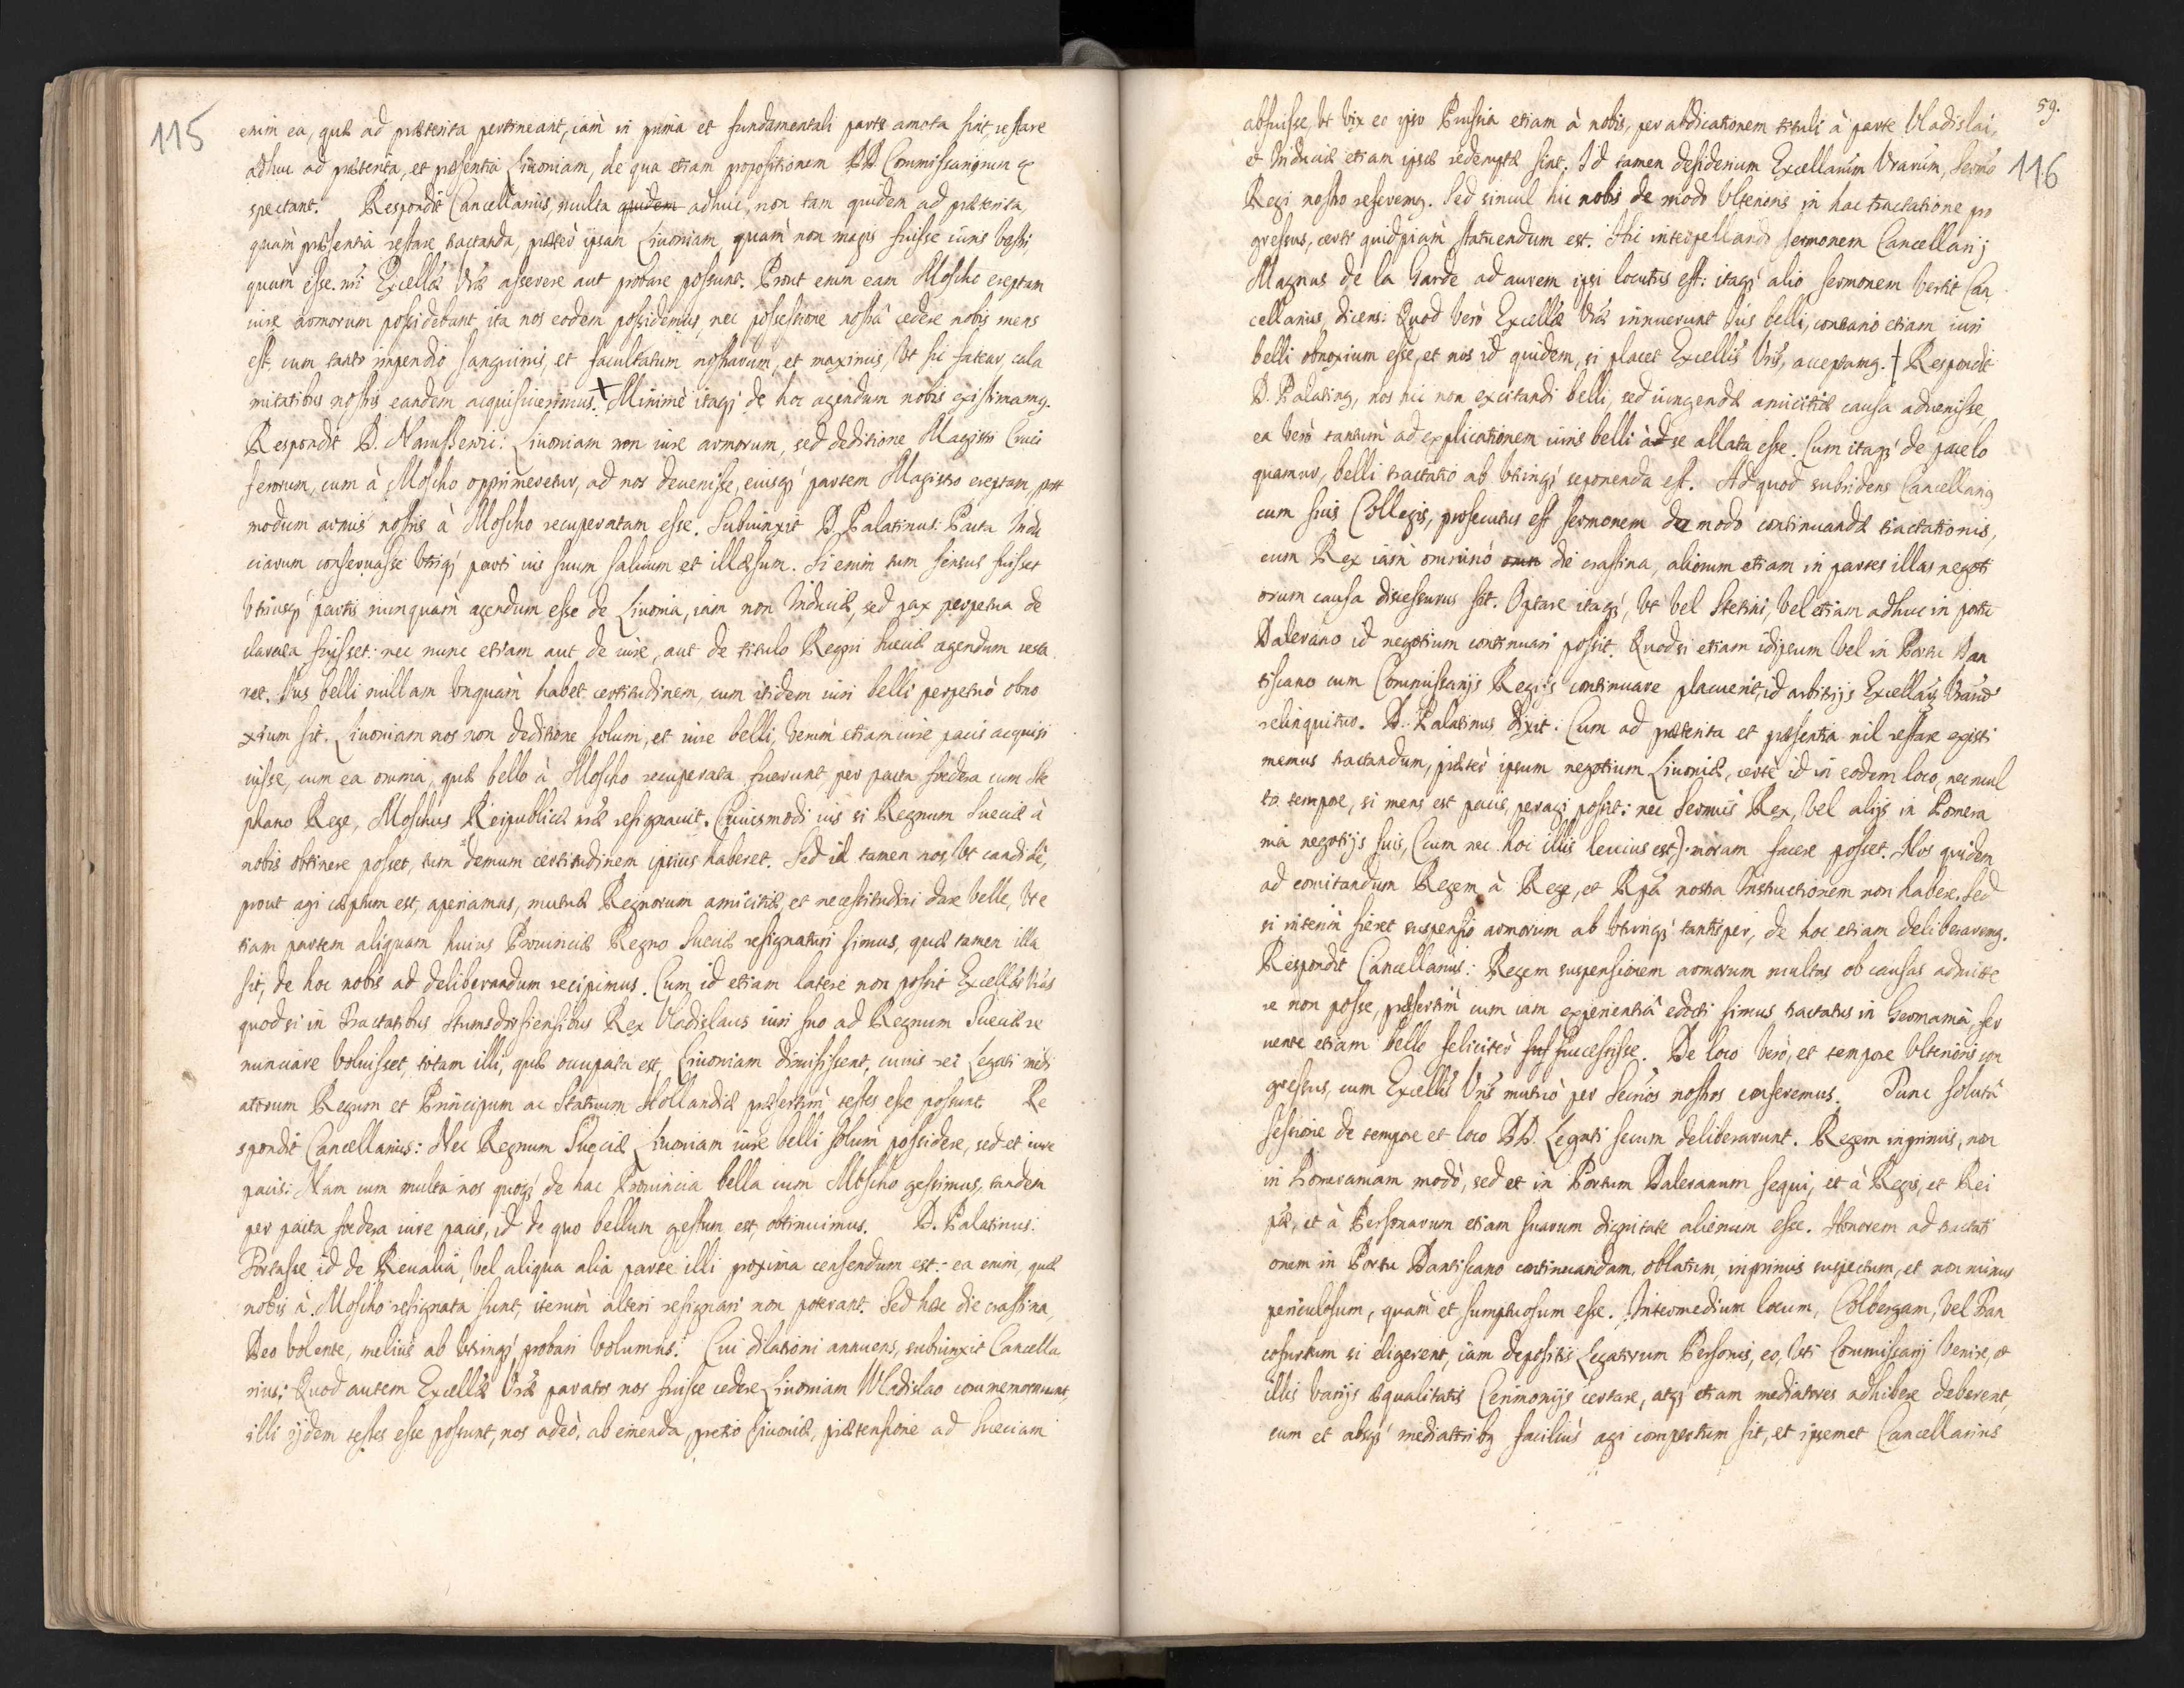 115
enim ea, quæ ad præterita pertineant, iam in prima et fundamentali parte amota sint, restare
adhuc ad præterita, et præsentia Liuoniam, de qua etiam propositionem DD. Commissariorum
spectant. Respondit Cancellarius, multa quidem adhuc, non tam quidem ad præterita,
quàm præsentia restare tractanda, præter ipsam Liuoniam, quam non magis fuisse iuris vestri,
quàm esse nri Excellæ Vræ asserere aut probare possunt. Prout enim eam Moscho ereptam
iure armorum possidebant, ita nos eodem possidemus, nec possessione nostrâ cedere nobis mens
est, cum tanto impendio sanguinis, et facultatum nostrarum, et maximis, Vt sic fatear, cala
mitatibus nostris eandem acquisiuerimus. + Minimè itaq; de hoc agendum nobis existimamq.
Respondit D. Naruszewic: Liuoniam non iure armorum, sed deditione Magistri Cruci
ferorum, cum à Moscho opprimeretur, ad nos deuenisse, eiusq; partem Magistro ereptam, post
modum armis nostris à Moscho recuperatam esse. Subiunxit D. Palatinus: Pacta Indu
ciarum conseruasse Vtriq; parti ius suum saluum et illæsum. Si enim tum sensus fuisset
Vtriusq; partis nunquam agendum esse de Liuonia, iam non Induciæ, sed pax perpetua de
clarata fuisset: nec nunc etiam aut de iure, aut de titulo Regni Sueciæ agendum resta
ret. Ius belli nullam Vnquàm habet certitudinem, cum itidem iuri belli perpetuò obno
xium sit. Liuoniam nos non deditione solum, et iure belli, Verùm etiam iure pacis acquisi
uisse, cum ea omnia, quæ bello à Moscho recuperata fuerunt, per pacta fœdera cum Ste
phano Rege, Moschus Reipublicæ nræ resignauit. Cuiusmodi ius si Regnum Sueciæ à
nobis obtinere posset, tum demum certitudinem ipsius haberet. Sed id tamen nos, Vt candidè,
prout agi cæptum est, aperiamus, mutuæ Regnorum amicitiæ, et necessitudini dare velle, Vt e
tiam partem aliquam huius Prouinciæ Regno Sueciæ resignaturi simus, quæ tamen illa
sit, de hoc nobis ad deliberandum recipimus. Cum id etiam latere non possit Excellas Vras
quod si in Tractatibus Stumsdorfiensibus Rex Vladislaus iuri suo ad Regnum Sueciæ re
nunciare Voluisset, totam illi, quæ occupata est, Liuoniam dimisissent, cuius rei Legati medi
atorum Regum et Principum ac Statuum Hollandiæ præsertim testes esse possunt. Re
spondit Cancellarius: Nec Regnum Sueciæ Liuoniam iure belli solùm possidere, sed et iure
pacis: Nam cum multa nos quoq; de hac Prouincia bella cum Moscho gessimus, tandem
per pacta fœdera iure pacis, id de quo bellum gestum est, obtinuimus. D. Palatinus:
Fortasse id de Reualiâ, Vel aliqua alia parte illi proxima censendum est: ea enim, quæ
nobis à Moscho resignata sunt, iterùm alteri resignari non poterant. Sed hæc die crastina,
Deo volente, melius ab Vtrinq; probari Volumus. Cui dilationi annuens, subiunxit Cancella
rius: Quod autem Excellæ Vræ paratos nos fuisse cedere Liuoniam Wladislao commemorarunt,
illi ijdem testes esse possunt, nos adeò, ab emenda, pretio Liuoniæ, prætensione ad Sueciam
59.
116
abfuisse, Vt Vix eo ipso Prussia etiam à nobis, per abdicationem tituli à parte Vladislai,
et Induciæ etiam ipsæ redemptæ sint. Id tamen desiderium Excellarum Vrarum, Sermo
Regi nostro referemq. Sed simul hic nobis de modo Vlterioris in hac tractatione pro
gressus, certi quidpiam statuendum est. Hic interpellando sermonem Cancellarij
Magnus de la Garde ad aurem ipsi locutus est: itaq; alio sermonem Vertit Can
cellarius, dicens: Quod Verò Excellæ Vræ innuerunt Ius belli, contrario etiam iuri
belli obnoxium esse, et nos id quidem, si placet Excellis Vris, acceptamq. † Respondit
D. Palatinq, nos hic non excitandi belli, sed iungendæ amicitiæ causa aduenisse,
ea Verò tantùm ad explicationem iuris belli à se allata esse. Cum itaq; de pace lo
quamur, belli tractatio ab Vtrinq; seponenda est. Ad quod subridens Cancellariq
cum suis Collegis, prosecutus est sermonem de modo continuandæ tractationis,
cum Rex iam omninò cum die crastina, aliorum etiam in partes illas negoti
orum causa discessurus sit. Optare itaq;, Vt Vel Stetini, Vel etiam adhuc in portu
Dalerano id negotium continuari possit. Quod si etiam idipsum Vel in Portu Dan
tiscano cum Commissarijs Regijs continuare placuerit, id arbitrijs Excellarq Vrarum
relinquitur. D. Palatinus dixit: Cum ad præterita et præsentia nil restare existi
memus tractandum, præter ipsum negotium Liuoniæ, certè id in eodem loco, nec mul
to tempore, si mens est pacis, peragi possit: nec Sermus Rex, Vel alijs in Pomera
nia negotijs suis, (cum nec hoc illis leuius est) moram facere posset. Nos quidem
ad comitandum Regem à Rege, et Rpca nostra Instructionem non habere. Sed
si interim fieret suspensio armorum ab Vtrinq; tantisper, de hoc etiam deliberaremq.
Respondit Cancellarius: Regem suspensionem armorum multas ob causas admitte
re non posse, præsertìm cum iam experientiâ edocti simus tractatus in Germania, fer
uente etiam bello feliciter suc successisse. De loco Verò, et tempore Vlterioris con
gressus, cum Excellis Vris mutuò per Secrios nostros conferemus. Tunc solutâ
sessione de tempore et loco DD. Legati secum deliberarunt. Regem inprimis, non
in Pomeraniam modò, sed et in Portum Daleranum sequi, et à Regis, et Rei
pcæ, et à Personarum etiam suarum dignitate alienum esse. Honorem ad tractati
onem in Portu Dantiscano continuandam, oblatum, inprimis suspectum, et non minus
periculosum, quàm et sumptuosum esse. Intermedium locum, Colbergam, Vel Fran
cofurtum si eligerent, iam depositis Legatorum Personis, eo, Vti Commissarij Venire, et
illis Varijs æqualitatis Cerimonijs certare, atq; etiam mediatores adhibere deberent,
cum et absq; mediatoribq faciliùs agi compertum sit, et ipsemet Cancellarius